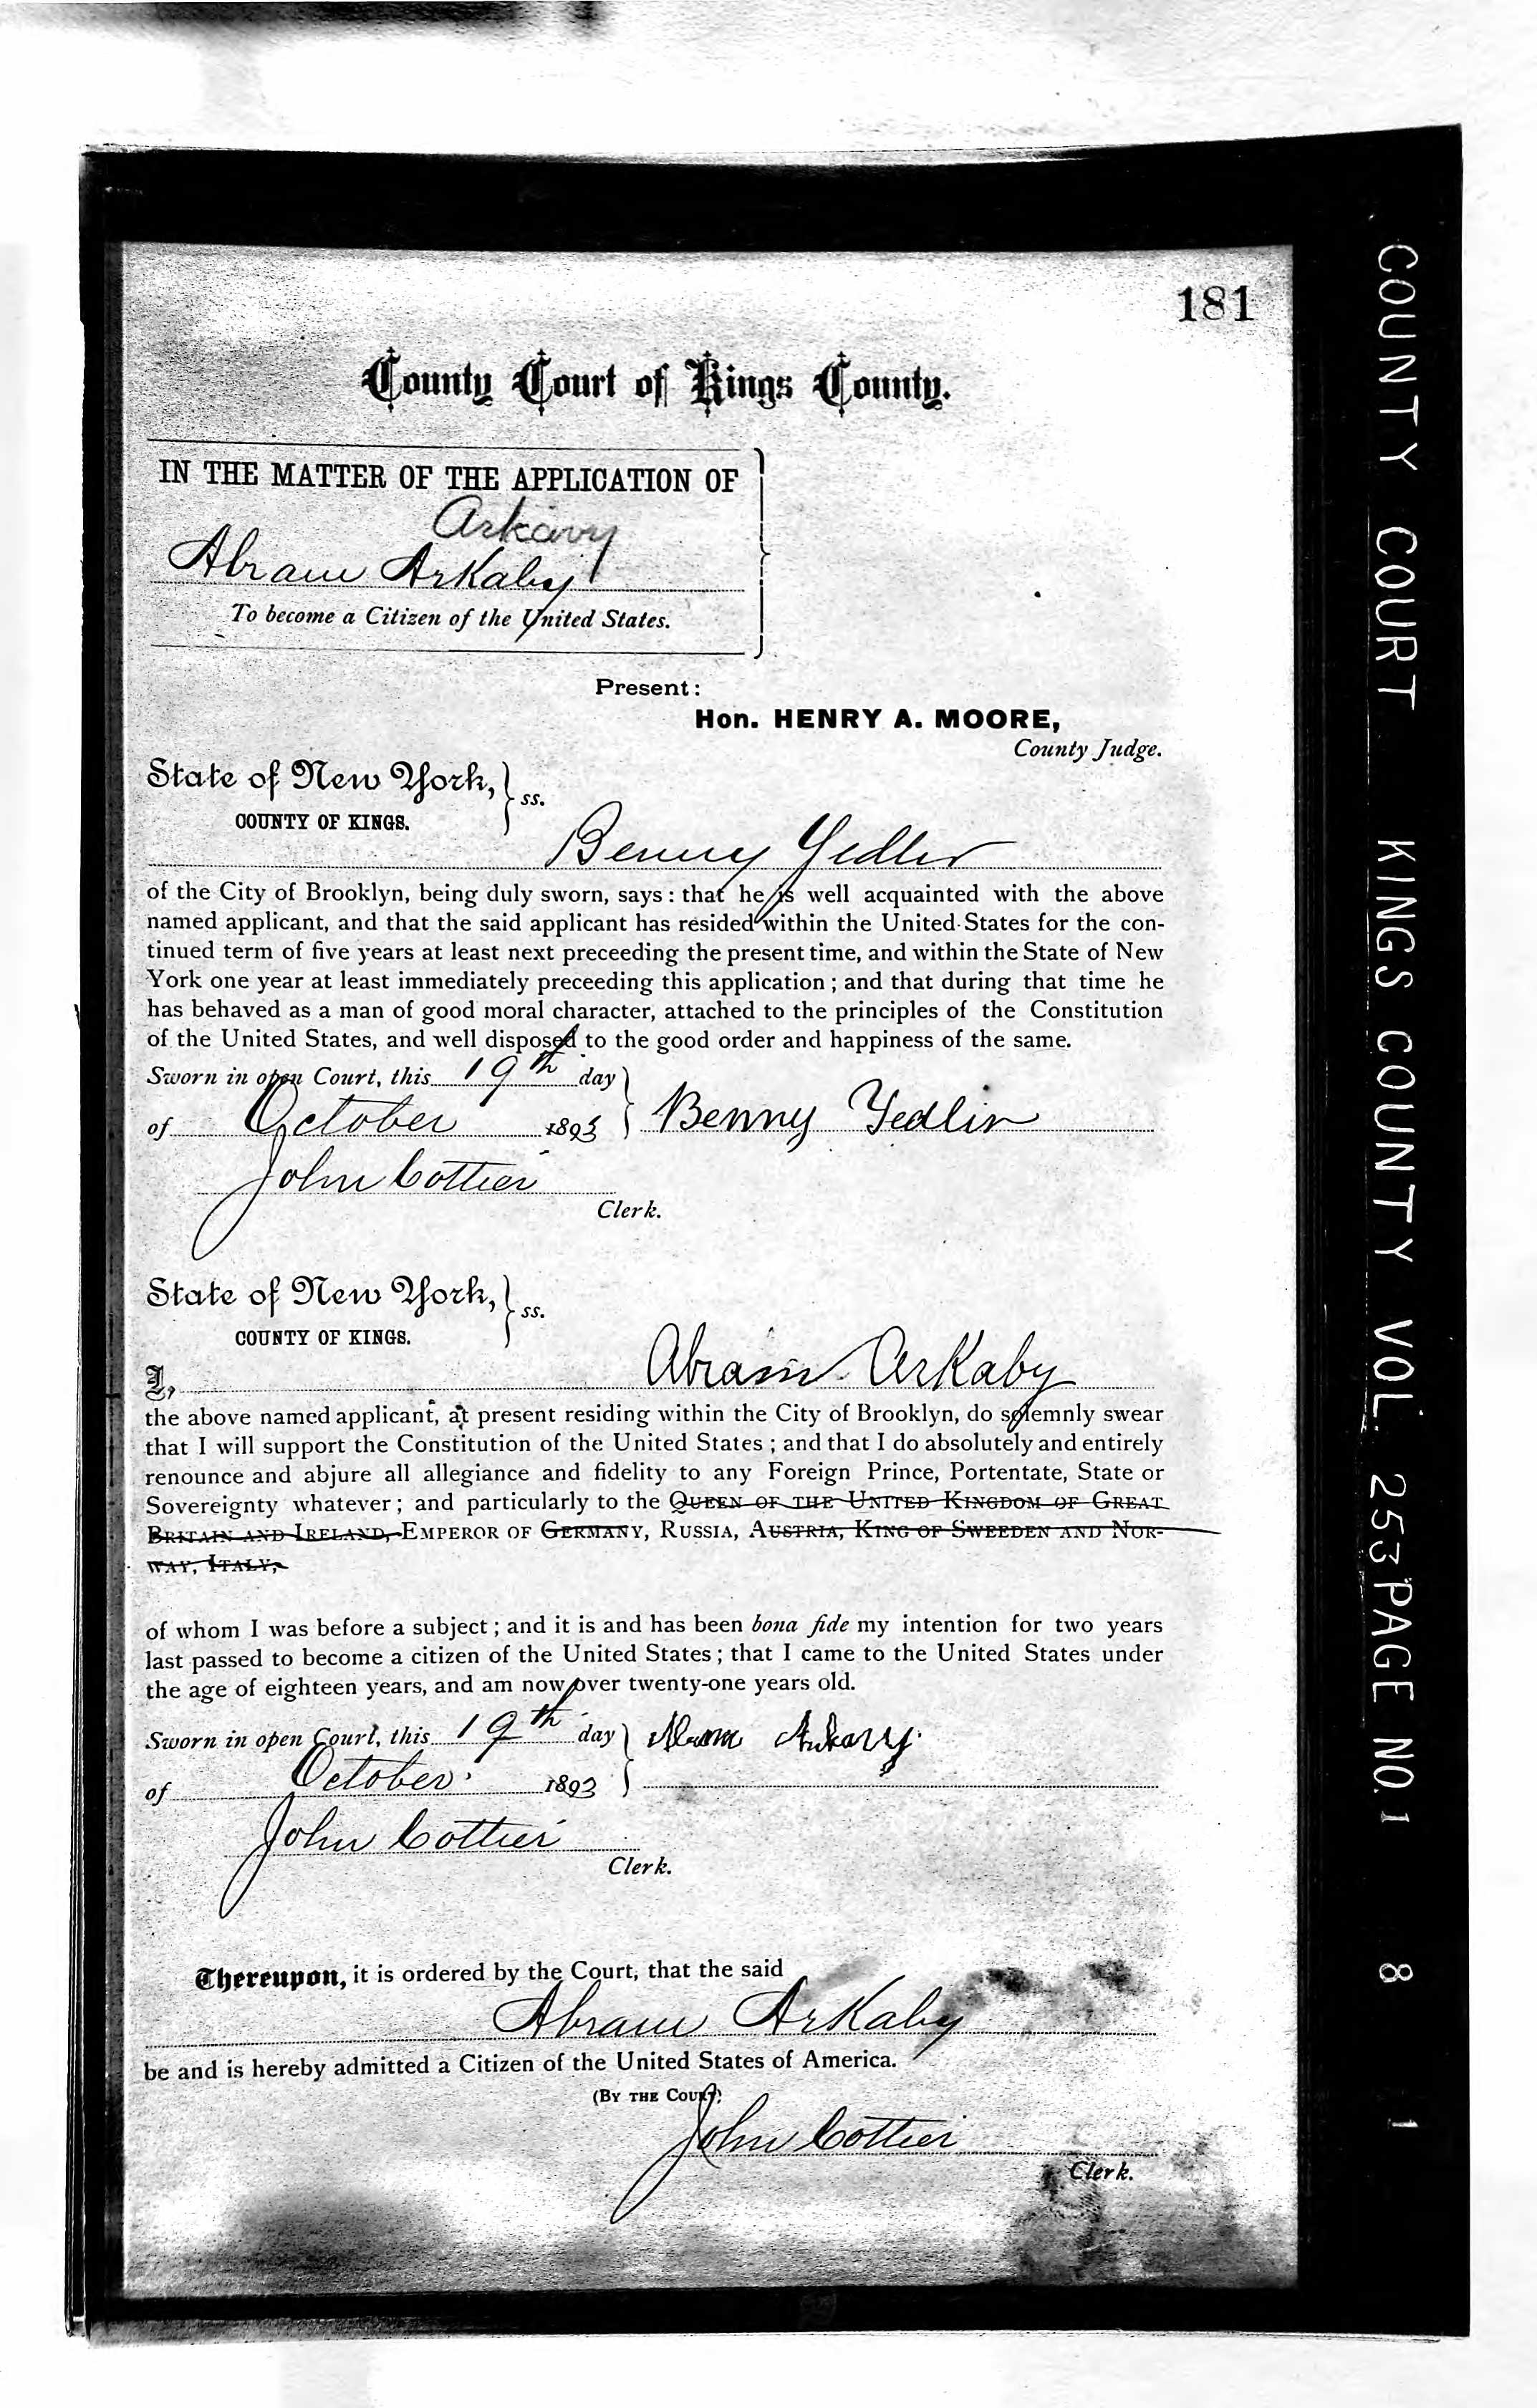 181
County Court of Kings County.
IN THE MATTER OF THE APPLICATION OF
Arkavy
Abram Arkaby
To become a Citizen of the United States.
Present:
Hon. HENRY A. MOORE,
County Judge.
State of New York, } ss.
COUNTY OF KINGS.
Benny Yedlir
of the City of Brooklyn, being duly sworn, says: that he is well acquainted with the above
named applicant, and that the said applicant has resided within the United States for the con-
tinued term of five years at least next preceeding the present time, and within the State of New
York one year at least immediately preceeding this application; and that during that time he
has behaved as a man of good moral character, attached to the principles of the Constitution
of the United States, and well disposed to the good order and happiness of the same.
Sworn in open Court, this 19th day
of October 1893 } Benny Yedlin
John Cottier
Clerk.
State of New York, } ss.
COUNTY OF KINGS.
I, Abram Arkaby
the above named applicant, at present residing within the City of Brooklyn, do solemnly swear
that I will support the Constitution of the United States; and that I do absolutely and entirely
renounce and abjure all allegiance and fidelity to any Foreign Prince, Portentate, State or
Sovereignty whatever; and particularly to the QUEEN OF THE UNITED KINGDOM OF GREAT
BRITAIN AND IRELAND, EMPEROR OF GERMANY, RUSSIA, AUSTRIA, KING OF SWEEDEN AND NOR-
WAY, ITALY,
of whom I was before a subject; and it is and has been bona fide my intention for two years
last passed to become a citizen of the United States; that I came to the United States under
the age of eighteen years, and am now over twenty-one years old.
Sworn in open Court, this 19th day } Abram Arkavy
of October 1893
John Cottier
Clerk.
Thereupon, it is ordered by the Court, that the said
Abram Arkaby
be and is hereby admitted a Citizen of the United States of America.
(BY THE COURT)
John Cottier
Clerk.
COUNTY COURT KINGS COUNTY VOL: 253 PAGE NO. 1 8 1